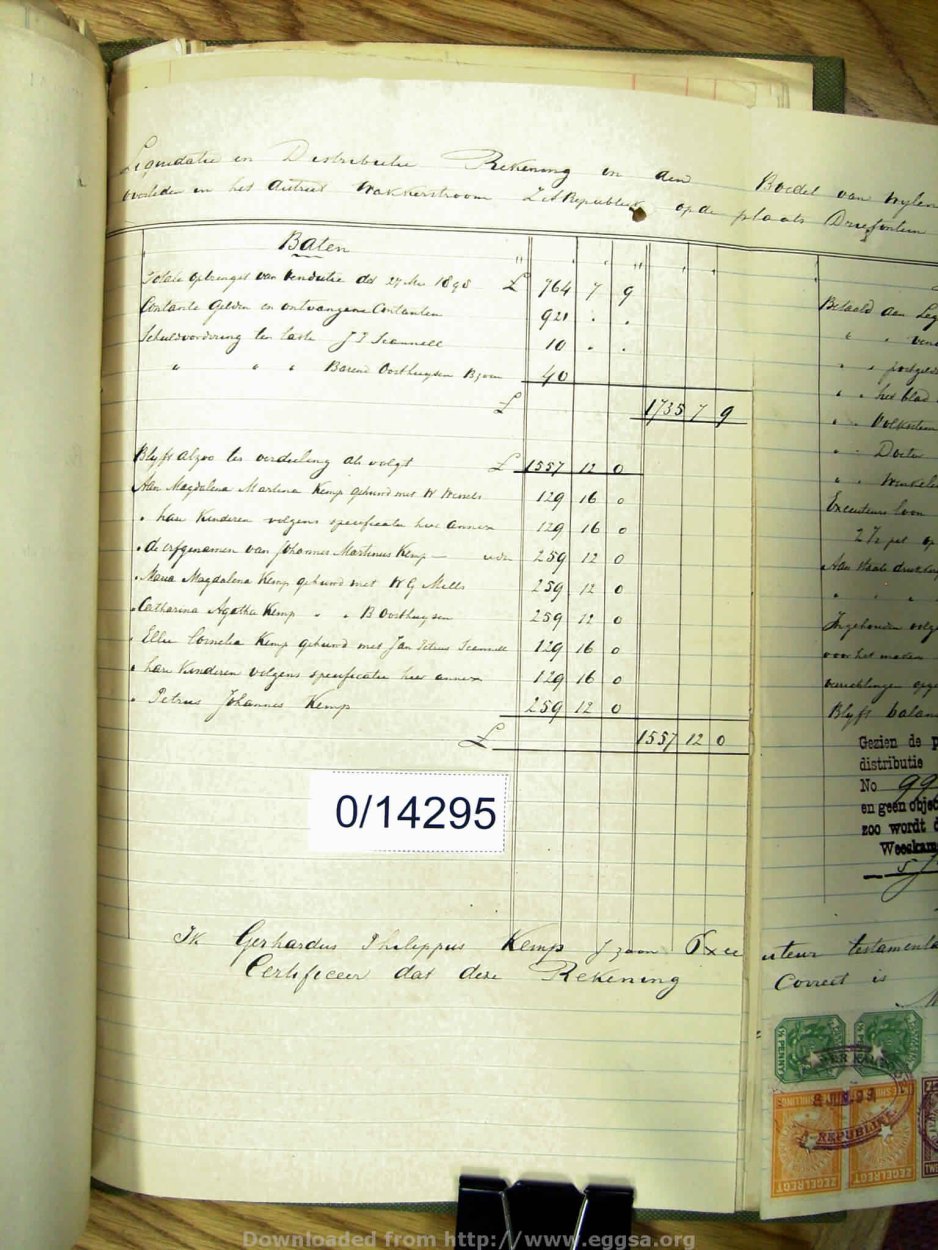 Liquidatie en Distributie Rekening in den Boedel van wylen
overleden in het district Wakkerstroom Z A Republiek op de plaats Driefontein
Baten
Totale opbrengst van Vendutie dd 27 1898 £ 764 7 9
Contante Gelden en ontvangene Contanten 921 . .
Schuldvordering ten laste J J Scannell 10 . .
" " " Barend Oosthuysen Bzoon 40
£ 1735 7 9
Blyft alzoo ter verdeeling als volgt £ 1557 12 0
Aan Magdalena Martina Kemp gehuwd met W 129 16 0
" hare Kinderen volgens specificatie hier annex 129 16 0
" de erfgenamen van Johannes Martinus Kemp — 259 12 0
" Maria Magdalena Kemp gehuwd met W G Mills 259 12 0
" Catharina Agatha Kemp " " B Oosthuysen 259 12 0
" Ellie Cornelia Kemp gehuwd met Jan Petrus Scannell 129 16 0
" hare Kinderen volgens specificatie hier annex 129 16 0
" Petrus Johannes Kemp 259 12 0
£ 1557 12 0
0/14295
Ik Gerhardus Philippus Kemp J zoon Executeur testamenta
Certificeer dat deze Rekening Correct is
Betaald aan Leg
" " vend
" " postgeld
" " het blad
" " Volksstem
" " Docter
" " Winkelie
Executeurs loon
2½ pct op
Aan Staats drukker
" " "
Ingehouden volg
voor het maken
verrichtingen opge
Blyft balan
Gezien de p
distributie
No 99
en geen objec
zoo wordt d
Weeskam
½ PENNY
½ PENNY
REPUBLIEK
ZEGELREGT
ZEGELREGT
Downloaded from http://www.eggsa.org